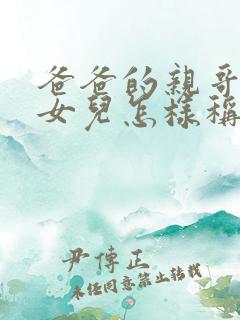 爸爸的親哥
女兒怎樣稱
尹傳正
未經同意禁止轉載